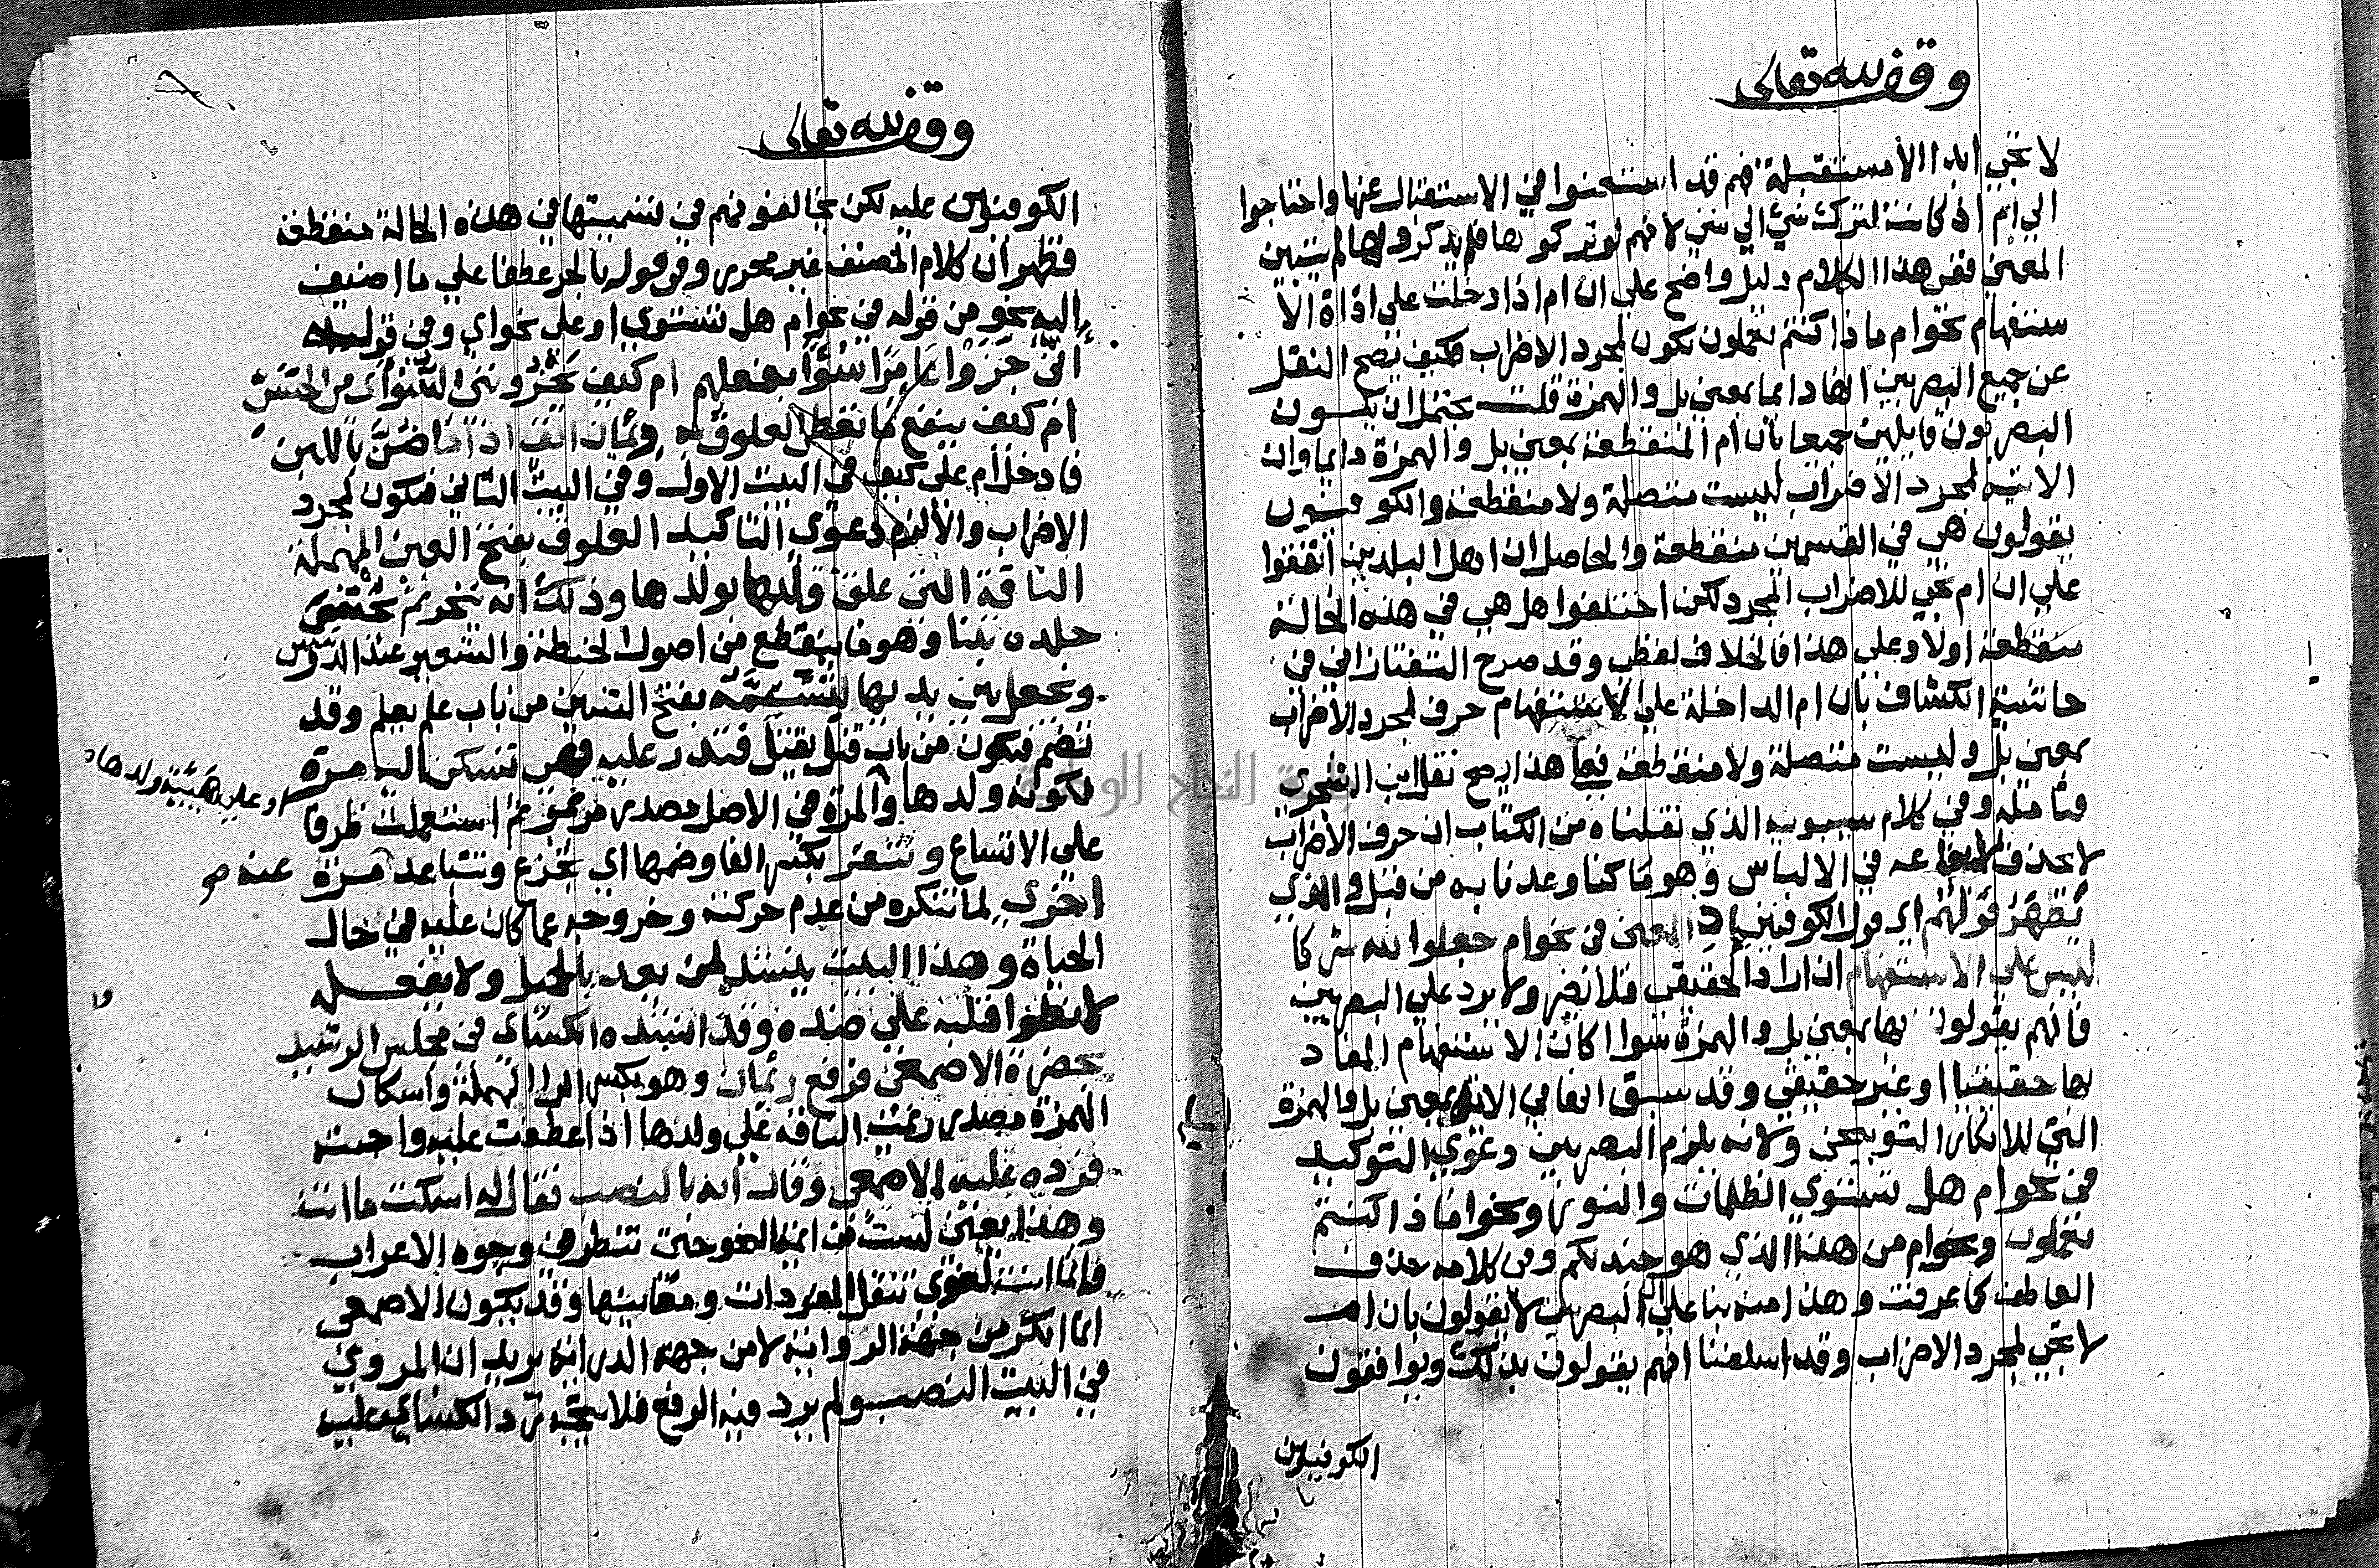 وقف لله تعالى
لا تجي ابدا الا مستقبلة فهم قد استحسنوا في الاستقبال عنها واحتاجوا
الي ام اذ كانت لترك شئ الي شئ لانهم لو تركوها فلم يذكروها لم يتبين
المعني ففي هذا الكلام دليل واضح على ان ام اذا دخلت على اداة الا
ستفهام نحو ام ماذا كنتم تعملون تكون لمجرد الاضراب فكيف تصح النقل
عن جميع البصريين انها دايما بمعني بل والهمزة قلت يحتمل ان يكون
البصريون قايلين جميعا بان ام المنقطعة بمعني بل والهمزة دايما وان
الاتية لمجرد الاضراب ليست متصلة ولا منقطعة والكوفيون
يقولون هي في القسمين منقطعة والحاصل ان اهل البلدين اتفقوا
علي ان ام تجي للاضراب المجرد لكن اختلفوا هل هي في هذه الحالة
منقطعة اولا وعلي هذا فالخلاف لفظي وقد صرح التفتازاني في
حاشية الكشاف بان ام الداخلة علي الاستفهام حرف لمجرد الاضراب
بمعني بل وليست متصلة ولا منقطعة فبها هذا يصح نقل ابن الشجري
فتامله وفي كلام سيبويه الذي نقلناه من الكتاب ان حرف الاضراب
لا يحذف لايقاعه في الالباس وهو ما كنا وعدنا به من قبل والذي
تظهر قولهم اي قول الكوفيين اذ المعني في نحو ام جعلوا لله شركا
ليس على الاستفهام ان اراد الحقيقي فلا يضر ولا يرد علي البصريين
فانهم يقولون انها بمعني بل والهمزة سوا اكان الاستفهام المفاد
بها حقيقيا او غير حقيقي وقد سبق انفا في الاية بمعني بل والهمزة
التي للانكار التوبيخي ولانه يلزم البصريين دعوي التوكيد
في نحو ام هل تستوي الظلمات والنور ونحو اماذا كنتم
تعملون ونحو ام من هذا الذي هو جند لكم وفي كلامه حذف
العاطف كما عرفت وهذا منه بنا علي ان البصريين لا يقولون بان ام
لا تجي لمجرد الاضراب وقد اسلفنا انهم يقولون بذلك ويوافقون
الكوفيون
وقف لله تعالى
الكوفيون عليه لكن يخالفونهم في تسميتها في هذه الحالة منقطعة
فظهر ان كلام المصنف غير محرر وفي قوله بالجر عطفا علي ما اضيف
اليه نحو من قوله في نحو ام هل تستوي او على نحو اي وفي قوله
انى جزوا عامرا سوءا بفعلهم ام كيف يجزونني السوأى من الحسن
ام كيف ينفع ما تعطي العلوق به رئمان انف اذا ما ضن باللبن
فادخل ام على كيف في البيت الاول وفي البيت الثاني فتكون لمجرد
الاضراب والا لزم دعوي التاكيد العلوق بفتح العين المهملة
الناقة التي علق قلبها بولدها وذلك انه ينحر ثم يحشى
جلده تبنا وهو ما ينقطع من اصول الحنطة والشعير عند الدرس
ويجعل بين يديها لتشمه بفتح الشين من باب علم يعلم وقد
تضم فتكون من باب قتل يقتل فتدر عليه فهي تسكن اليه مرة
لكونه ولدها والمرة في الاصل مصدر مر يمر ثم استعملت ظرفا
او علي هيئة ولدها
على الاتساع وتنفر بكسر الفا وضمها اي تجزع وتتباعد مرة عنه
اخرى لما تنكره من عدم حركته وخروجه عما كان عليه في حال
الحياة وهذا البيت ينشد لمن يعد بالجميل ولا يفعله
لانطوا قلبه علي ضده وقد انشده الكسائ في مجلس الرشيد
بحضرة الاصمعي فرفع رئمان وهو بكسر الرا المهملة واسكان
الهمزة مصدر رئمت الناقة علي ولدها اذا عطفت عليه واحبته
فرده عليه الاصمعي وقال انه بالنصب فقال له اسكت ما انت
وهذا يعني لست من ايمة النحو حتي تتطرف وجوه الاعراب
فانما انت لغوي تنقل المفردات ومعانيها وقد يكون الاصمعي
انما انكر من جهة الرواية لا من جهة الدراية يريد ان المروي
في البيت النصب ولم يرد فيه الرفع فلا يتجه رد الكسائ عليه